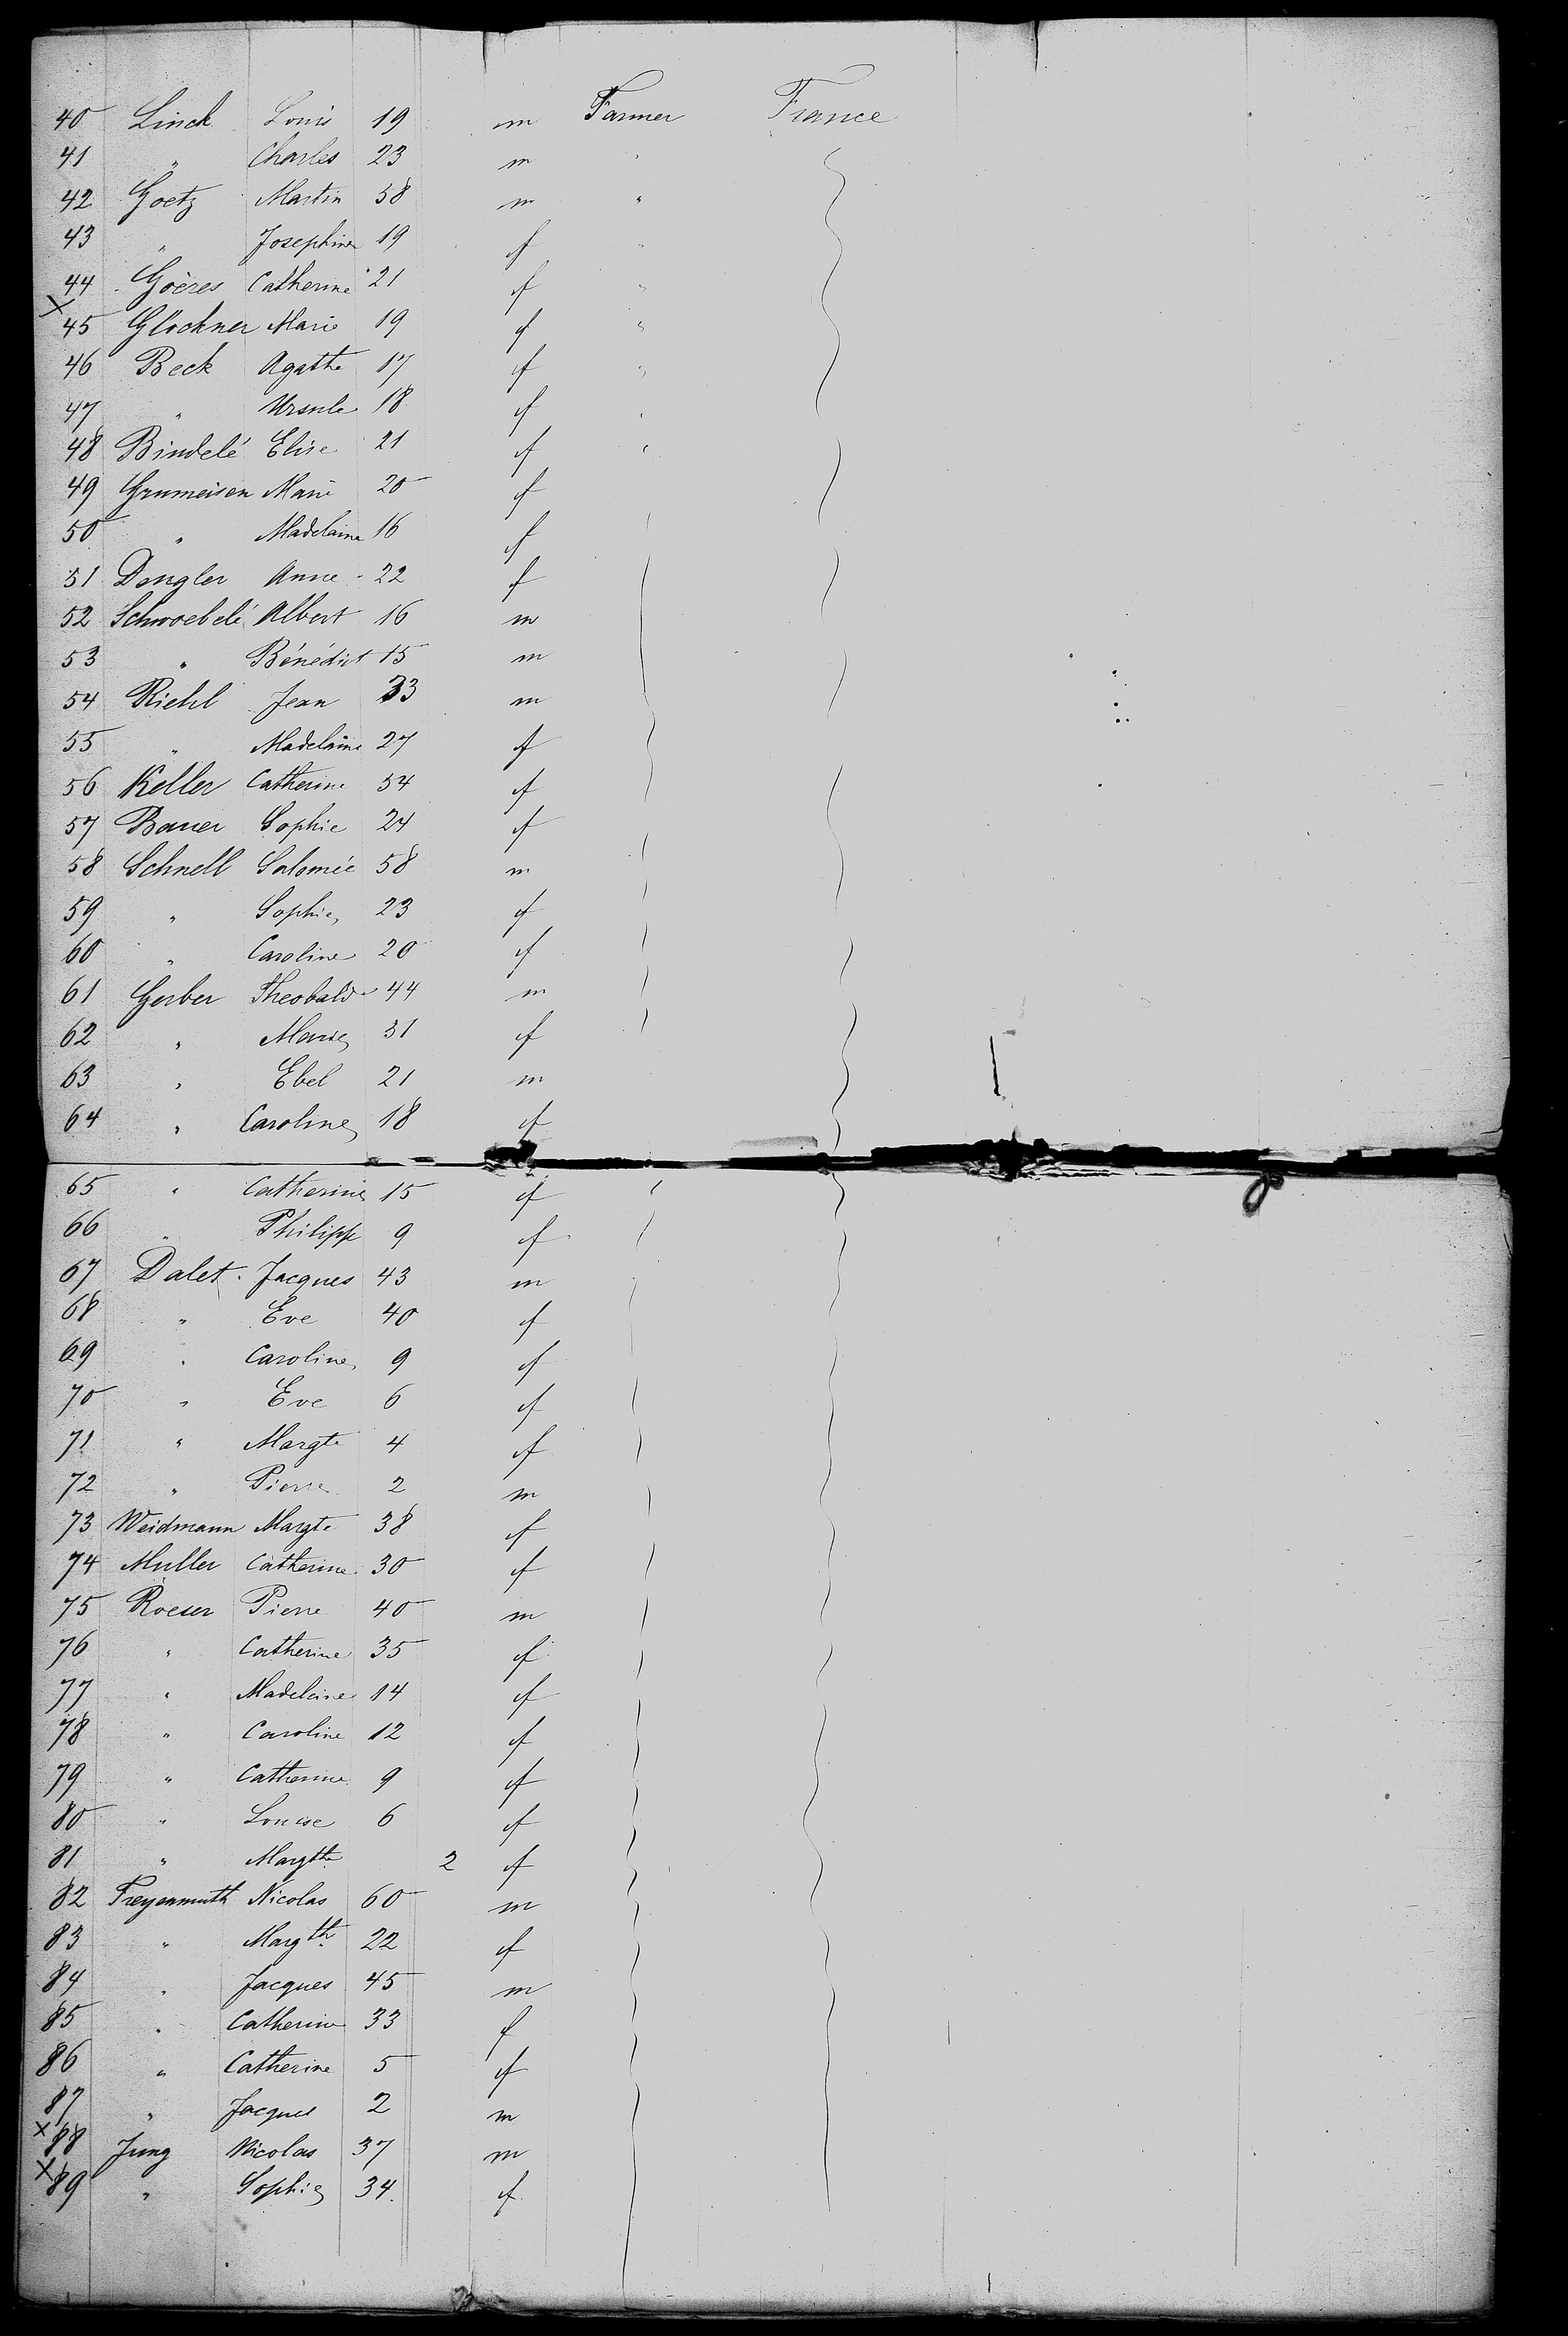 40 Linck Louis 19 m Farmer France
41 " Charles 23 m "
42 Goetz Martin 58 m "
43 " Josephine 19 f "
44 Goères Catherine 21 f "
x 45 Glockner Marie 19 f "
46 Beck Agathe 17 f "
47 " Ursule 18 f "
48 Bindelé Elise 21 f "
49 Grumeisen Marie 20 f
50 " Madelaine 16 f
51 Dengler Anne 22 f
52 Schwoebelé Albert 16 m
53 " Bénédict 15 m
54 Riehl Jean 33 m
55 " Madelaine 27 f
56 Keller Catherine 54 f
57 Bauer Sophie 24 f
58 Schnell Salomée 58 m
59 " Sophie 23 f
60 " Caroline 20 f
61 Gerber Theobald 44 m
62 " Marie 51 f
63 " Ebel 21 m
64 " Caroline 18 f
65 " Catherine 15 f
66 " Philipp 9 f
67 Dalet Jacques 43 m
68 " Eve 40 f
69 " Caroline 9 f
70 " Eve 6 f
71 " Margte 4 f
72 " Pierre 2 m
73 Weidmann Margte 38 f
74 Muller Catherine 30 f
75 Roeser Pierre 40 m
76 " Catherine 35 f
77 " Madeleine 14 f
78 " Caroline 12 f
79 " Catherine 9 f
80 " Louise 6 f
81 " Margth 2 f
82 Freyermuth Nicolas 60 m
83 " Margth 22 f
84 " Jacques 45 m
85 " Catherine 33 f
86 " Catherine 5 f
87 " Jacques 2 m
x 88 Jung Nicolas 37 m
x 89 " Sophie 34 f